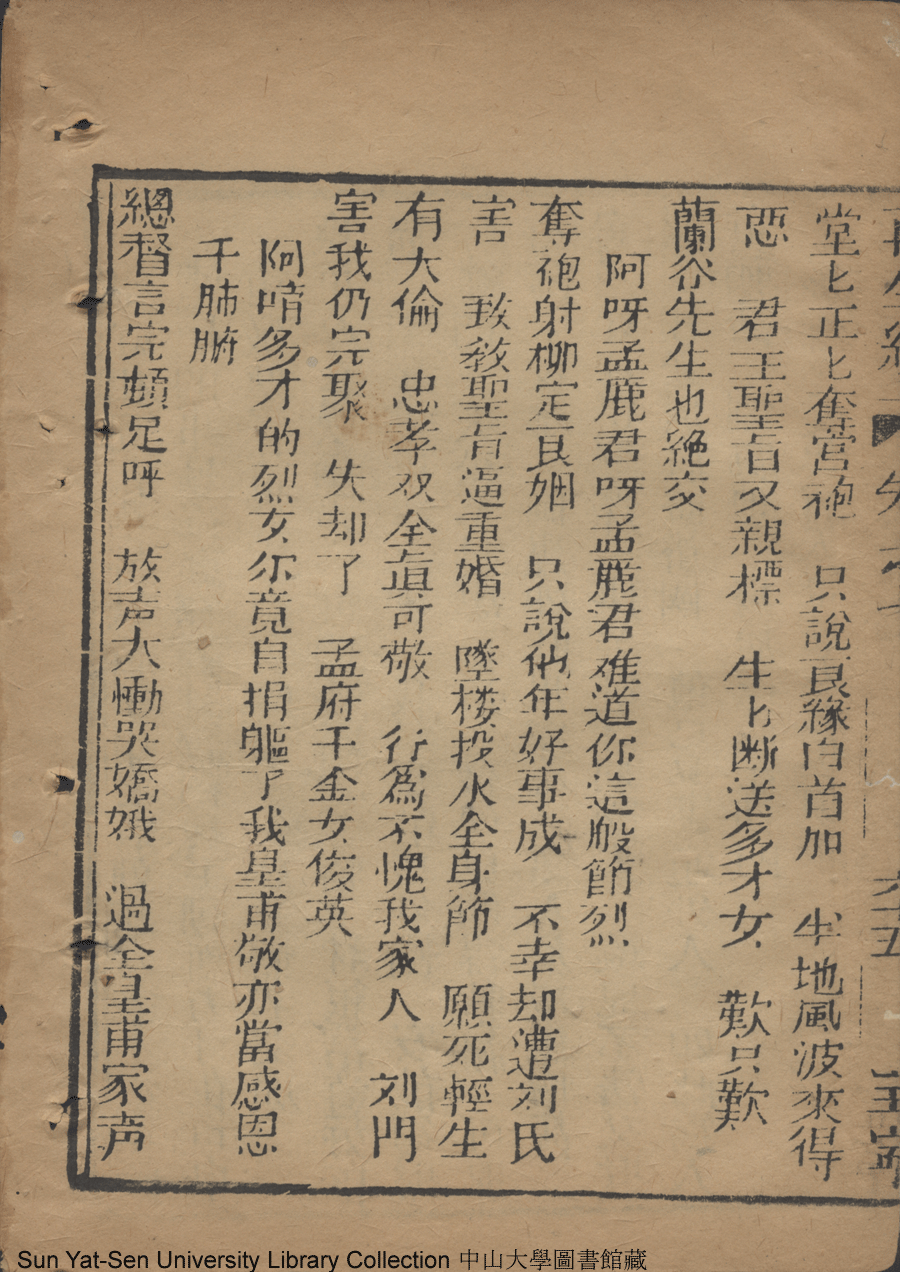 堂匕正匕奪宮袍　只說良緣白首加　平地風波來得
惡　君王聖旨又親標　生匕断送多才女　歎只歎
蘭谷先生也絶交
阿呀孟麗君呀孟麗君难道你這般節烈
奪袍射柳定良姻　只說他年好事成　不幸却遭刘氏
害　致教聖旨逼重婚　墜楼投水全身節　願死輕生
有大倫　忠孝双全眞可敬　行爲不愧我家人　刘門
害我仍完聚　失却了　孟府千金女俊英
阿唷多才的烈女尔竟自捐軀了我皇甫敬亦當感恩
千肺腑
總督言完頓足呼　放声大慟哭嬌娥　過全皇甫家声
Sun Yat-Sen University Library Collection 中山大學圖書館藏